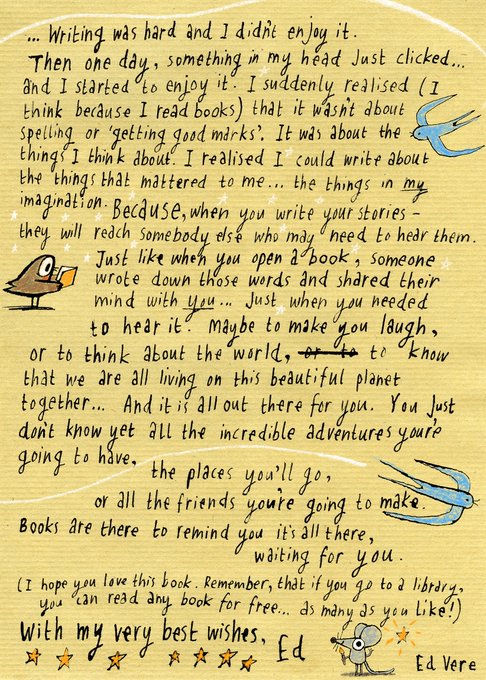 ... Writing was hard and I didn't enjoy it.
Then one day, something in my head just clicked...
and I started to enjoy it. I suddenly realised (I
think because I read books) that it wasn't about
spelling or 'getting good marks'. It was about the
things I think about. I realised I could write about
the things that mattered to me... the things in my
imagination. Because, when you write your stories –
they will reach somebody else who may need to hear them.
Just like when you open a book, someone
wrote down those words and shared their
mind with you... Just when you needed
to hear it. Maybe to make you laugh,
or to think about the world, or to to know
that we are all living on this beautiful planet
together... And it is all out there for you. You just
don't know yet all the incredible adventures you're
going to have,
the places you'll go,
or all the friends you're going to make.
Books are there to remind you it's all there,
waiting for you.
(I hope you love this book. Remember, that if you go to a library,
you can read any book for free... as many as you like!)
With my very best wishes, Ed
Ed Vere